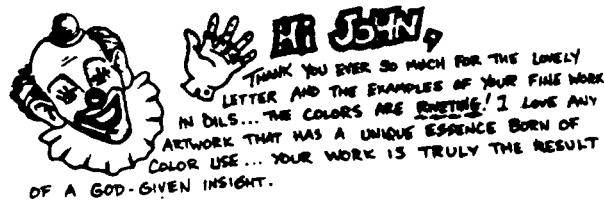 Hi JOHN,
THANK YOU EVER SO MUCH FOR THE LOVELY
LETTER AND THE EXAMPLES OF YOUR FINE WORK
IN OILS... THE COLORS ARE RIVETING! I LOVE ANY
ARTWORK THAT HAS A UNIQUE ESSENCE BORN OF
COLOR USE... YOUR WORK IS TRULY THE RESULT
OF A GOD-GIVEN INSIGHT.